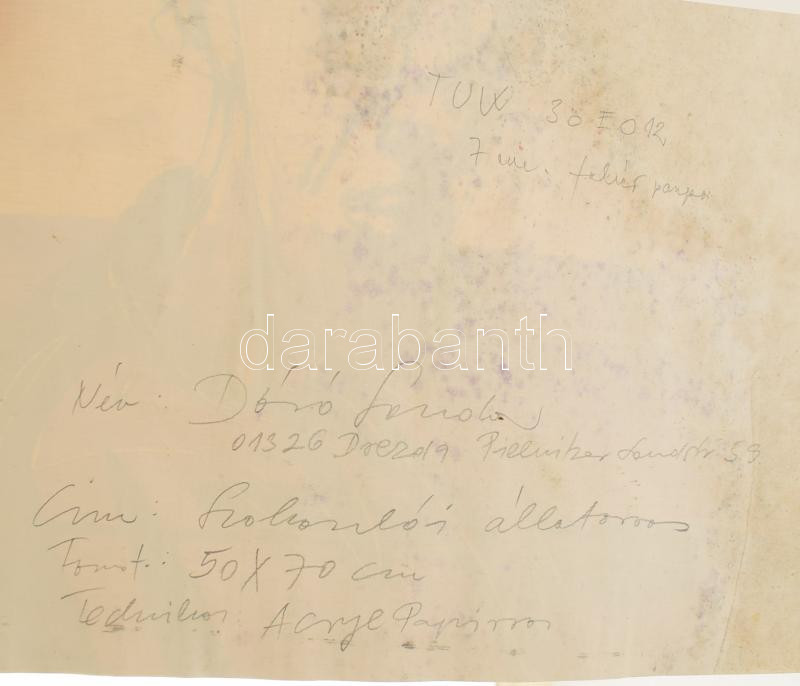 TUW 30 I 012
7 cm. fehér
darabanth
Név: Dóró Sándor
01326 Drezda Pillnitzer Landstr 59
Cím: állatorvos
50 X 70 cm
Technika Acryl Papíron